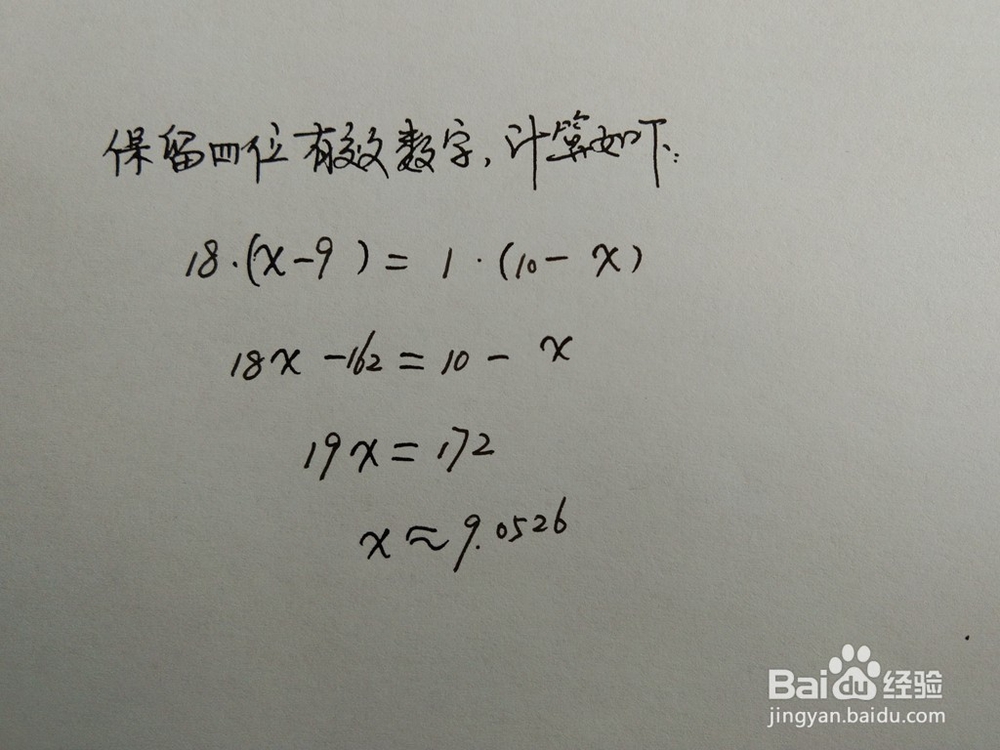 保留四位有效数字,计算如下:
18·(x-9)=1·(10-x)
18x-162=10-x
19x=172
x≈9.0526
Bai du 经验
jingyan.baidu.com